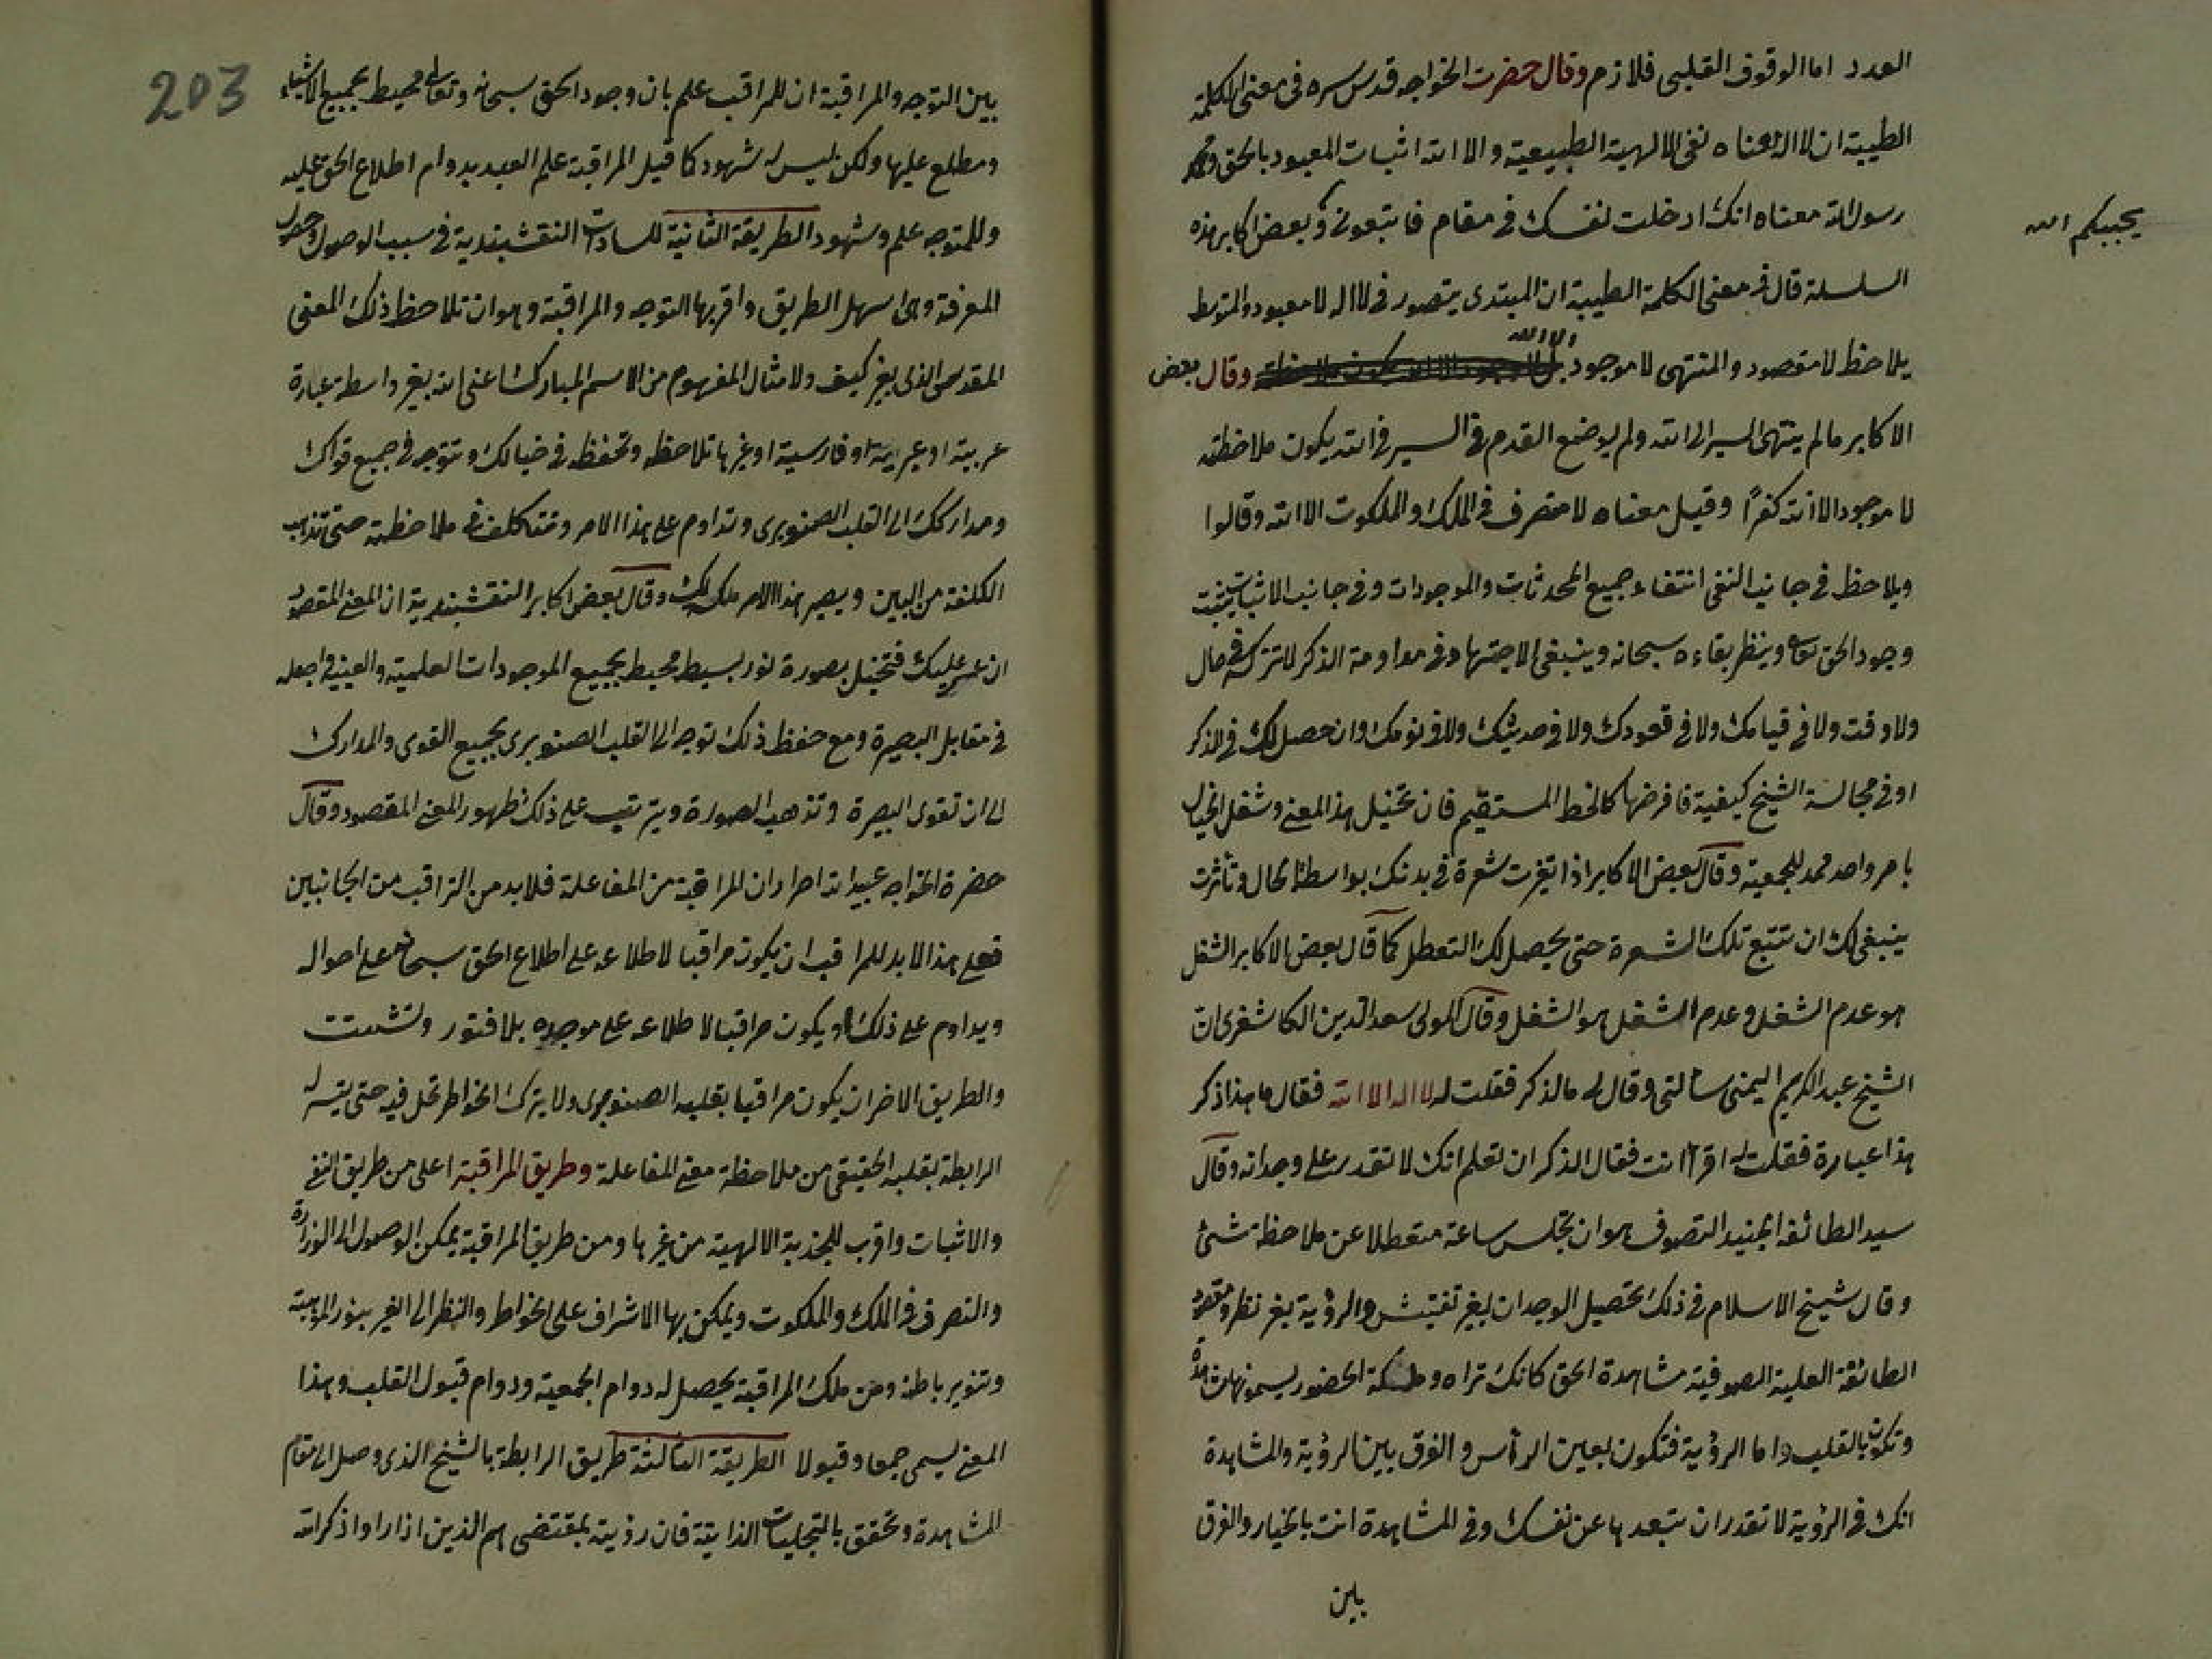 العدد اما الوقوف القلبى فلازم وقال حضرت الخواجه قدس سره فى معنى الكلمة
الطيبة ان لا اله معناه نفى الالهية الطبيعية والا الله اثبات المعبود بالحق ومحمد
رسول الله معناه انك ادخلت نفسك فى مقام فاتبعونى وبعض اكابر هذه
يحببكم الله
السلسلة قال فى معنى الكلمة الطيبة ان المبتدى يتصور فى لا اله لا معبود والمتوسط
يلاحظ لا مقصود والمنتهى لا موجود الا الله وقال بعض
الاكابر مالم ينتهى السير الى الله ولم يوضع القدم فى السير فى الله يكون ملاحظة
لا موجود الا الله كفرًا وقيل معناه لا متصرف فى الملك والملكوت الا الله وقالوا
ويلاحظ فى جانب النفى انتفاء جميع المحدثات والموجودات وفى جانب الاثبات يثبت
وجود الحق تعالى وينظر بقاءه سبحانه وينبغى الاجتهاد فى مداومة الذكر لا تتركه فى حال
ولا وقت ولا فى قيامك ولا فى قعودك ولا فى حديثك ولا فى نومك وان حصل لك فى الذكر
او فى مجالسة الشيخ كيفية فافرضها كالخط المستقيم فان تخيل هذا المعنى وشغل الخيال
بامر واحد ممد للجمعية وقال بعض الاكابر اذا تغيرت شعرة فى بدنك بواسطة الحال وتأثرت
ينبغى لك ان تتبع تلك الشعرة حتى يحصل لك التعطل كما قال بعض الاكابر الشغل
هو عدم الشغل وعدم الشغل هو الشغل وقال المولى سعد الدين الكاشغرى ان
الشيخ عبد الكريم اليمنى سألنى وقال لى ما الذكر فقلت له لا اله الا الله فقال ما هذا ذكر
هذا عبارة فقلت له اقرأ انت فقال الذكر ان تعلم انك لا تقدر على وجدانه وقال
سيد الطائفة الجنيد التصوف هو ان تجلس ساعة متعطلا عن ملاحظة شئ
وقال شيخ الاسلام فى ذلك تحصيل الوجدان بغير تفتيش والرؤية بغير نظر ومقصود
الطائفة العلية الصوفية مشاهدة الحق كانك تراه وملكة الحضور يسمونها مشاهدة
وتكون بالقلب واما الرؤية فتكون بعين الرأس والفرق بين الرؤية والمشاهدة
انك فى الرؤية لا تقدر ان تبعدها عن نفسك وفى المشاهدة انت بالخيار والفرق
بين
203
بين التوجه والمراقبة ان للمراقب علم بان وجود الحق سبحانه وتعالى محيط بجميع الاشياء
ومطلع عليها ولكن ليس له شهود كما قيل المراقبة علم العبد بدوام اطلاع الحق عليه
وللمتوجه علم وشهود الطريقة الثانية للسادات النقشبندية فى سبب الوصول وحصول
المعرفة وهى اسهل الطريق واقربها التوجه والمراقبة وهو ان تلاحظ ذلك المعنى
المقدس الذى بغير كيف ولا مثال المفهوم من الاسم المبارك اعنى الله بغير واسطة عبارة
عربية او عبرية او فارسية او غيرها تلاحظه وتحفظه فى خيالك وتتوجه فى جميع قواك
ومداركك الى القلب الصنوبرى وتداوم على هذا الامر وتتكلف فى ملاحظته حتى تذهب
الكلفة من البين ويصير هذا الامر ملك لك وقال بعض اكابر النقشبندية ان المعنى المقصود
ان عسر عليك فتخيل بصورة نور بسيط محيط بجميع الموجودات العلمية والعينية واجعله
فى مقابل البصيرة ومع حفظ ذلك توجه الى القلب الصنوبرى بجميع القوى والمدارك
الى ان تقوى البصيرة وتذهب الصورة ويترتب على ذلك ظهور المعنى المقصود وقال
حضرة الخواجه عبيد الله احرار ان المراقبة من المفاعلة فلابد من التراقب من الجانبين
فعلى هذا لابد للمراقب ان يكون مراقبا لاطلاعه على اطلاع الحق سبحانه على احواله
ويداوم على ذلك او يكون مراقبا لاطلاعه على موجده بلا فتور وتشتت
والطريق الاخر ان يكون مراقبا بقلبه الصنوبرى ولا يترك الخواطر تحل فيه حتى يتيسر له
الرابطة بقلبه الحقيقى من ملاحظة معنى المفاعلة وطريق المراقبة اعلى من طريق النفى
والاثبات واقرب للجذبة الالهية من غيرها ومن طريق المراقبة يمكن الوصول الى الوزارة
والتصرف فى الملك والملكوت ويمكن بها الاشراف على الخواطر والنظر الى الغير بنور الموهبة
وتنوير باطنه ومن ملك المراقبة يحصل له دوام الجمعية ودوام قبول القلب وهذا
المعنى يسمى جمعا وقبولا الطريقة الثالثة طريق الرابطة بالشيخ الذى وصل الى مقام
المشاهدة وتحقق بالتجليات الذاتية فان رؤيته بمقتضى هم الذين اذا راوا ذكر الله